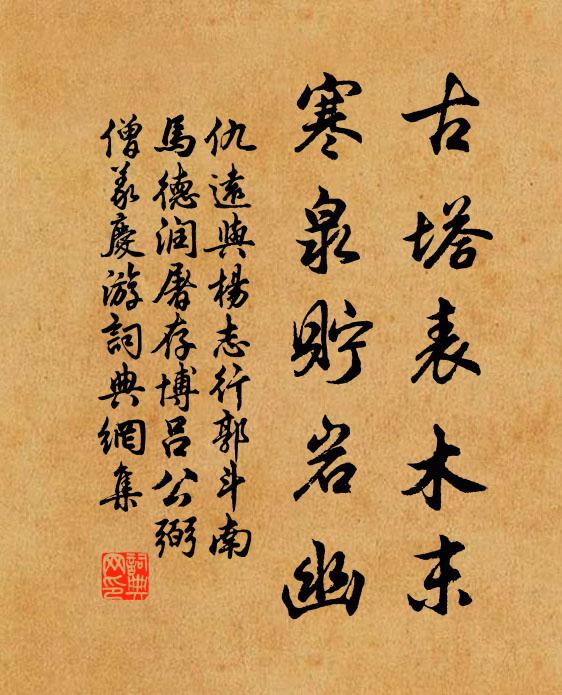 古塔表木末
寒泉貯岩幽
仇遠與楊志行郭斗南
馬德润屠存博吕公弼
僧義慶游詞典網集
詞典网印